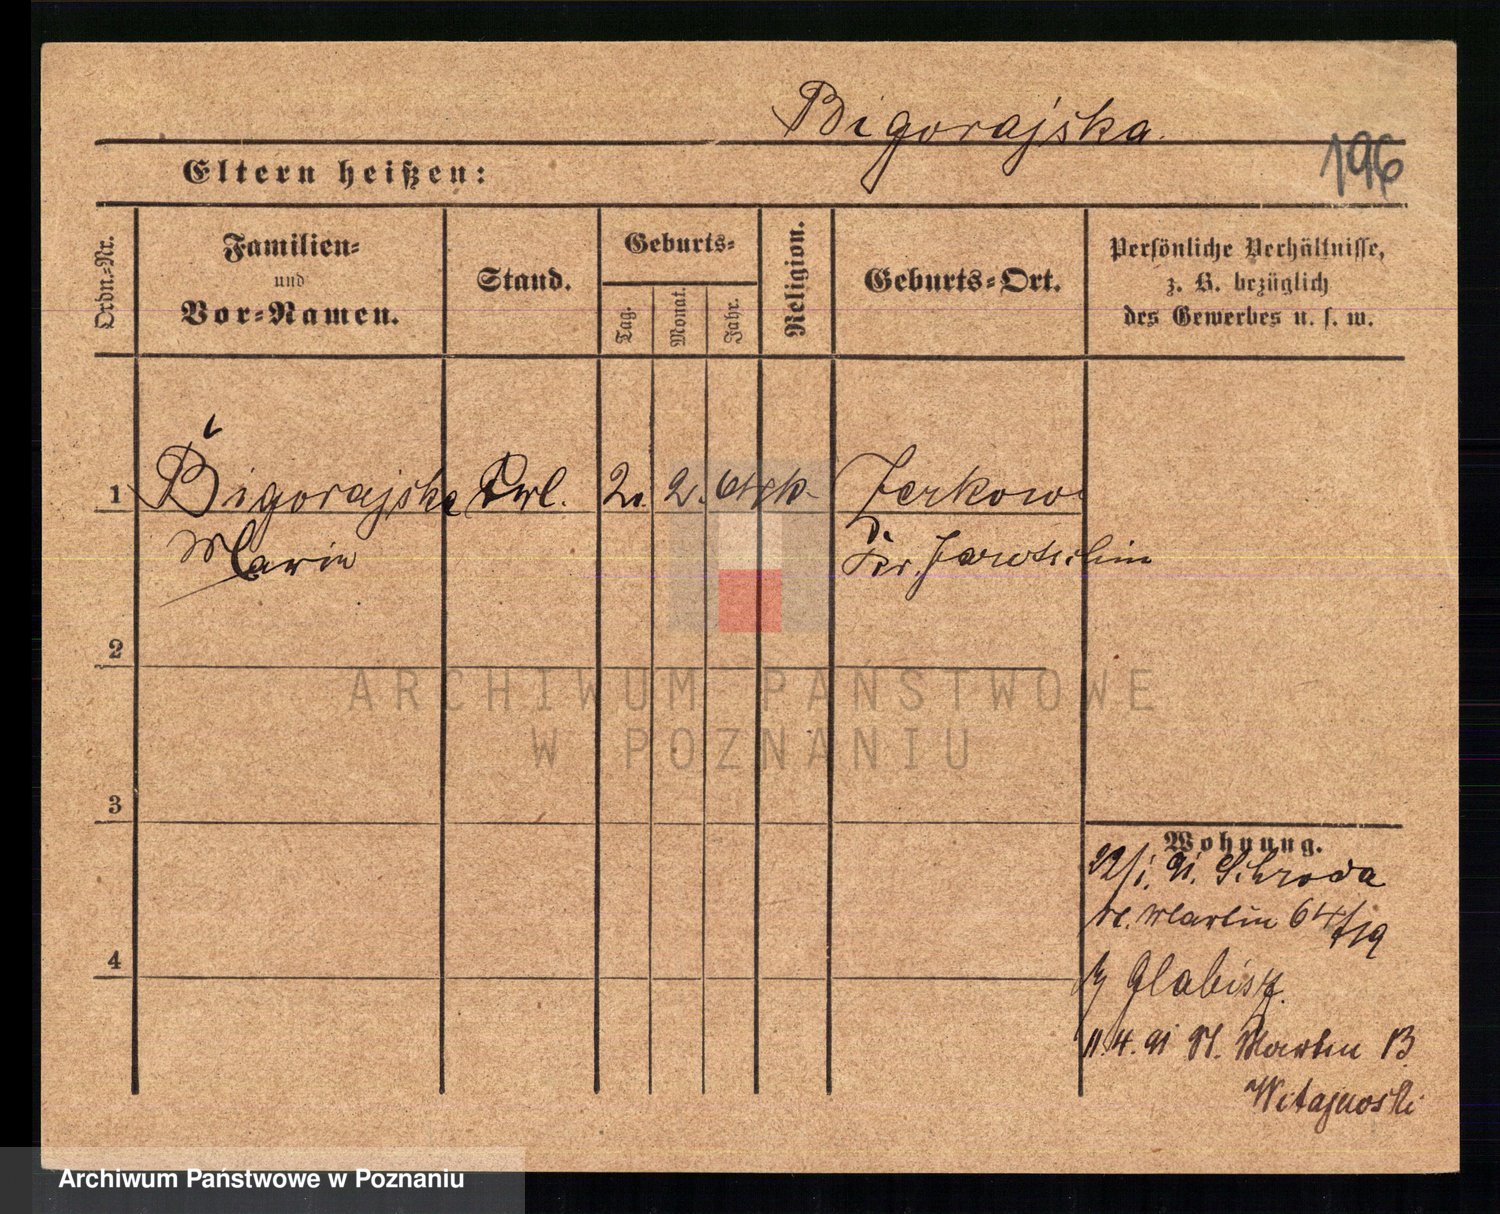 Bigorajska.
196
Eltern heißen:
Ordn.-Nr.
Familien-
und
Vor-Namen.
Stand.
Geburts-
Tag.
Monat.
Jahr.
Religion.
Geburts-Ort.
Persönliche Verhältnisse,
z. B. bezüglich
des Gewerbes u. s. w.
1 Bigorajska 2. 2. 64 k. Zerkow
Marie
Kr. Jarotschin
2
ARCHIWUM PAŃSTWOWE
W POZNANIU
3
Wohnung.
22/1. 91. Schroda
St. Martin 64/
4
Glabisz.
11.4.91 St. Martin 13
Archiwum Państwowe w Poznaniu